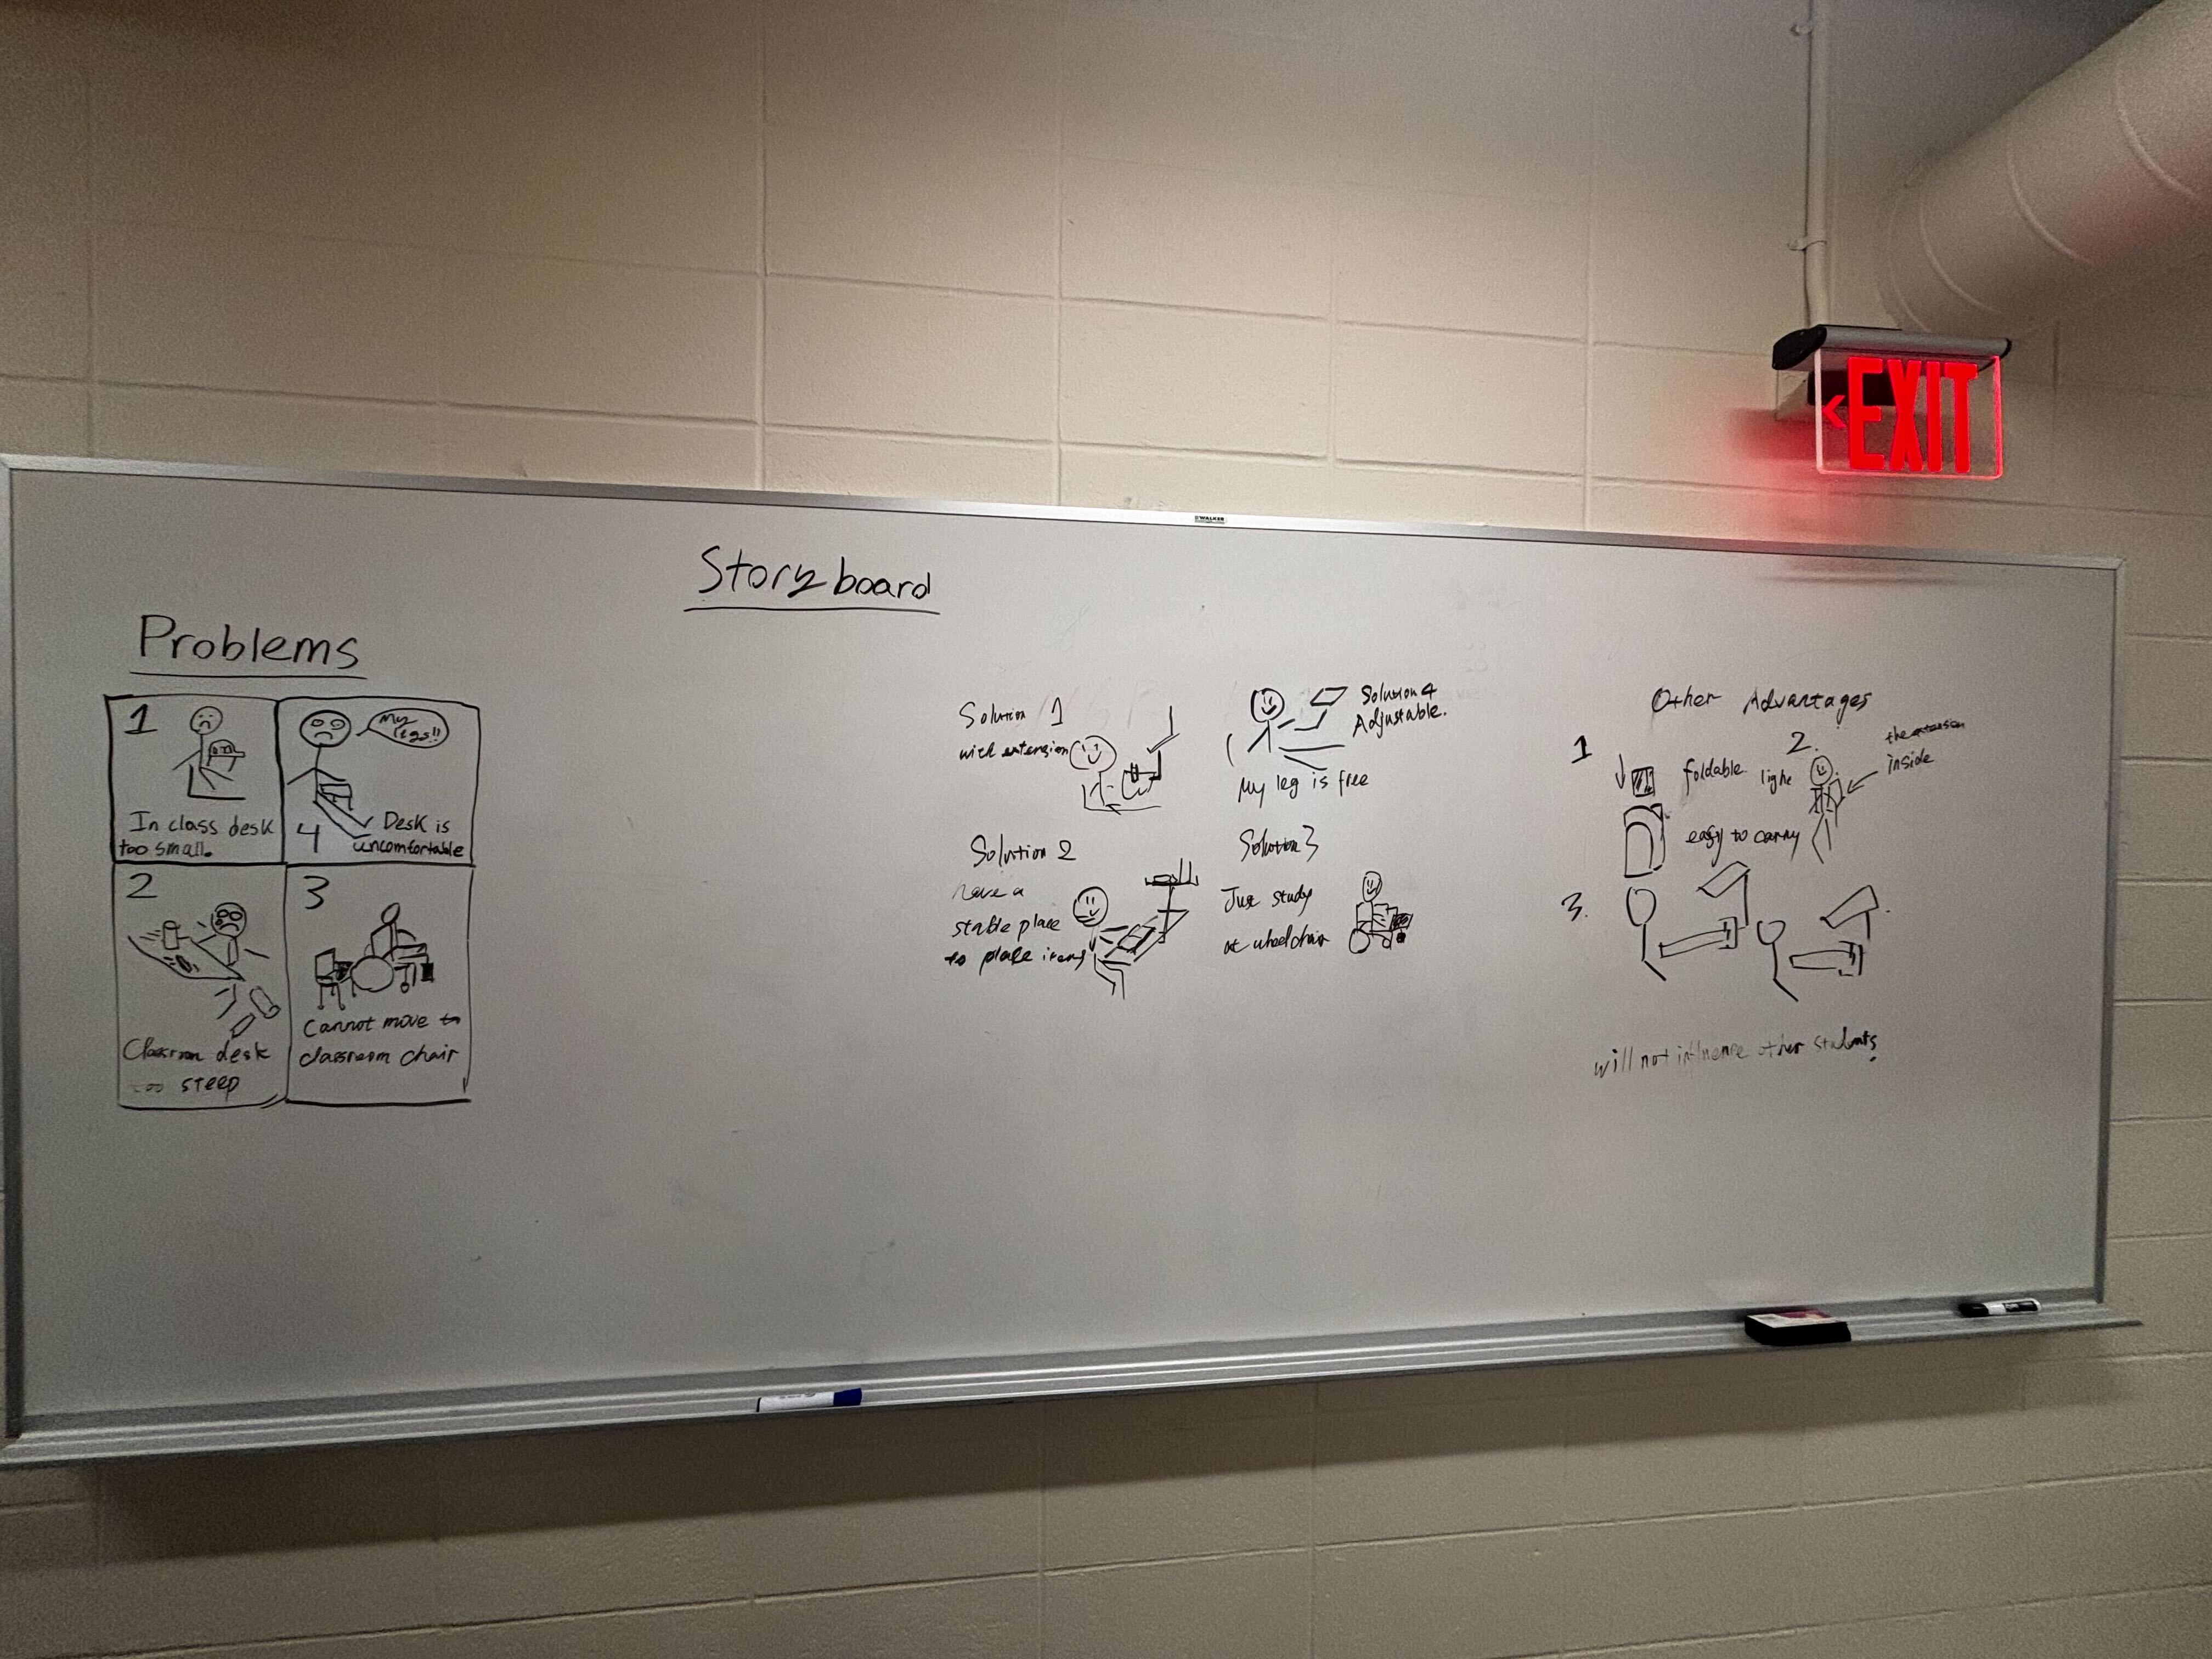 EXIT
WALKER
Storyboard
Problems
1
In class desk
too small.
My
legs!!
4
Desk is
uncomfortable
2
Classroom desk
too steep
3
Cannot move to
classroom chair
Solution 1
with extension
Solution 4
Adjustable.
My leg is free
Solution 2
have a
stable place
to place items
Solution 3
Just study
at wheelchair
Other Advantages
1
foldable
2.
light
the extension
inside
easy to carry
3.
will not influence other students.